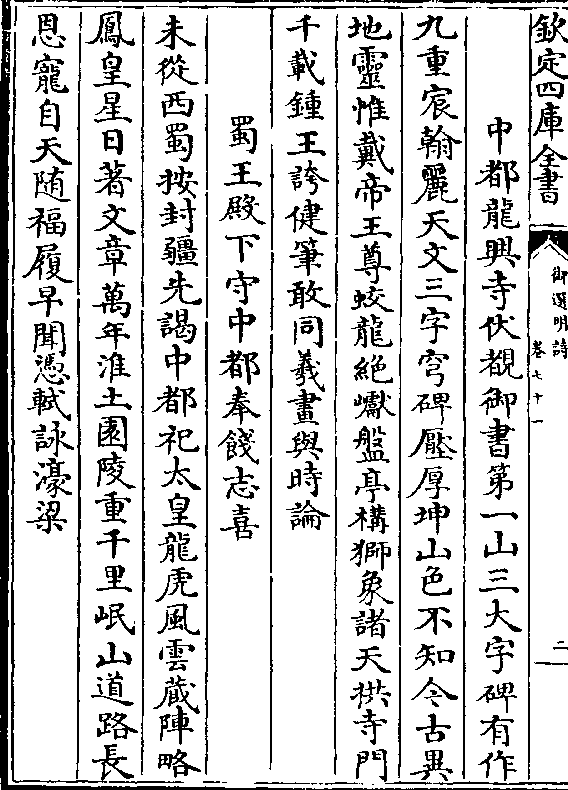 欽定四庫全書
御選明詩
卷七十一
二
中都龍興寺伏覩御書第一山三大字碑有作
九重宸翰麗天文三字穹碑壓厚坤山色不知今古異
地靈惟戴帝王尊蛟龍絶巘盤亭構獅象諸天拱寺門
千載鍾王誇健筆敢同羲畫與時論
蜀王殿下守中都奉餞志喜
未從西蜀按封疆先謁中都祀太皇龍虎風雲蔵陣略
鳳皇星日著文章萬年淮土園陵重千里岷山道路長
恩寵自天随福履早聞憑軾詠濠梁